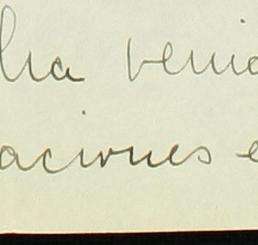 ha venid
aciones e